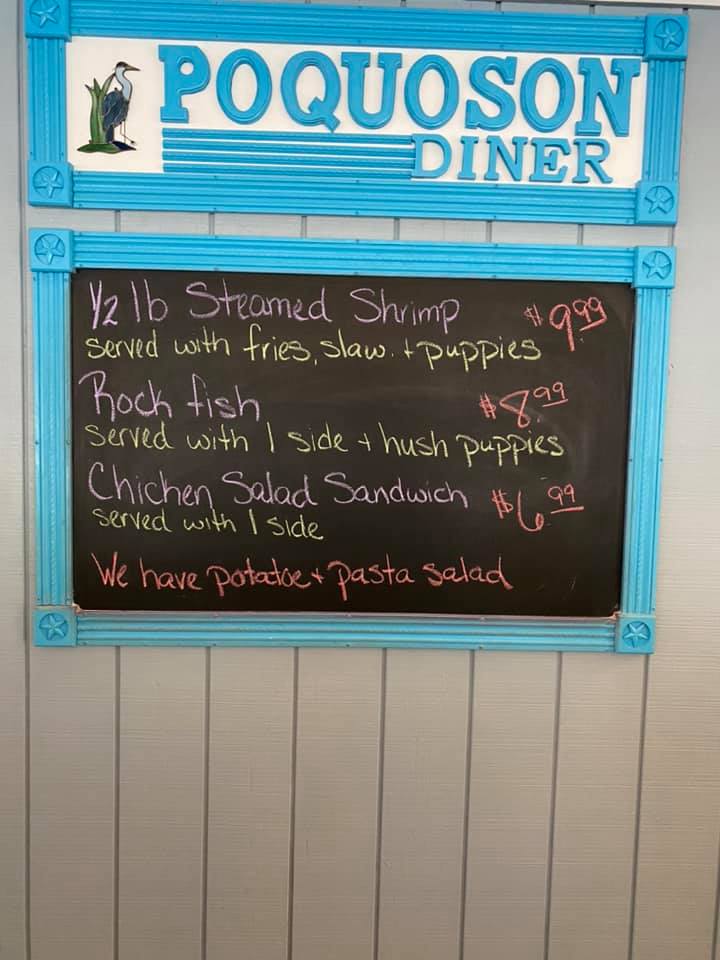 POQUOSON
DINER
1/2 lb Steamed Shrimp $9.99
served with fries, slaw. + puppies
Rock fish $8.99
served with 1 side + hush puppies
Chicken Salad Sandwich $6.99
served with 1 side
We have potatoe + pasta salad